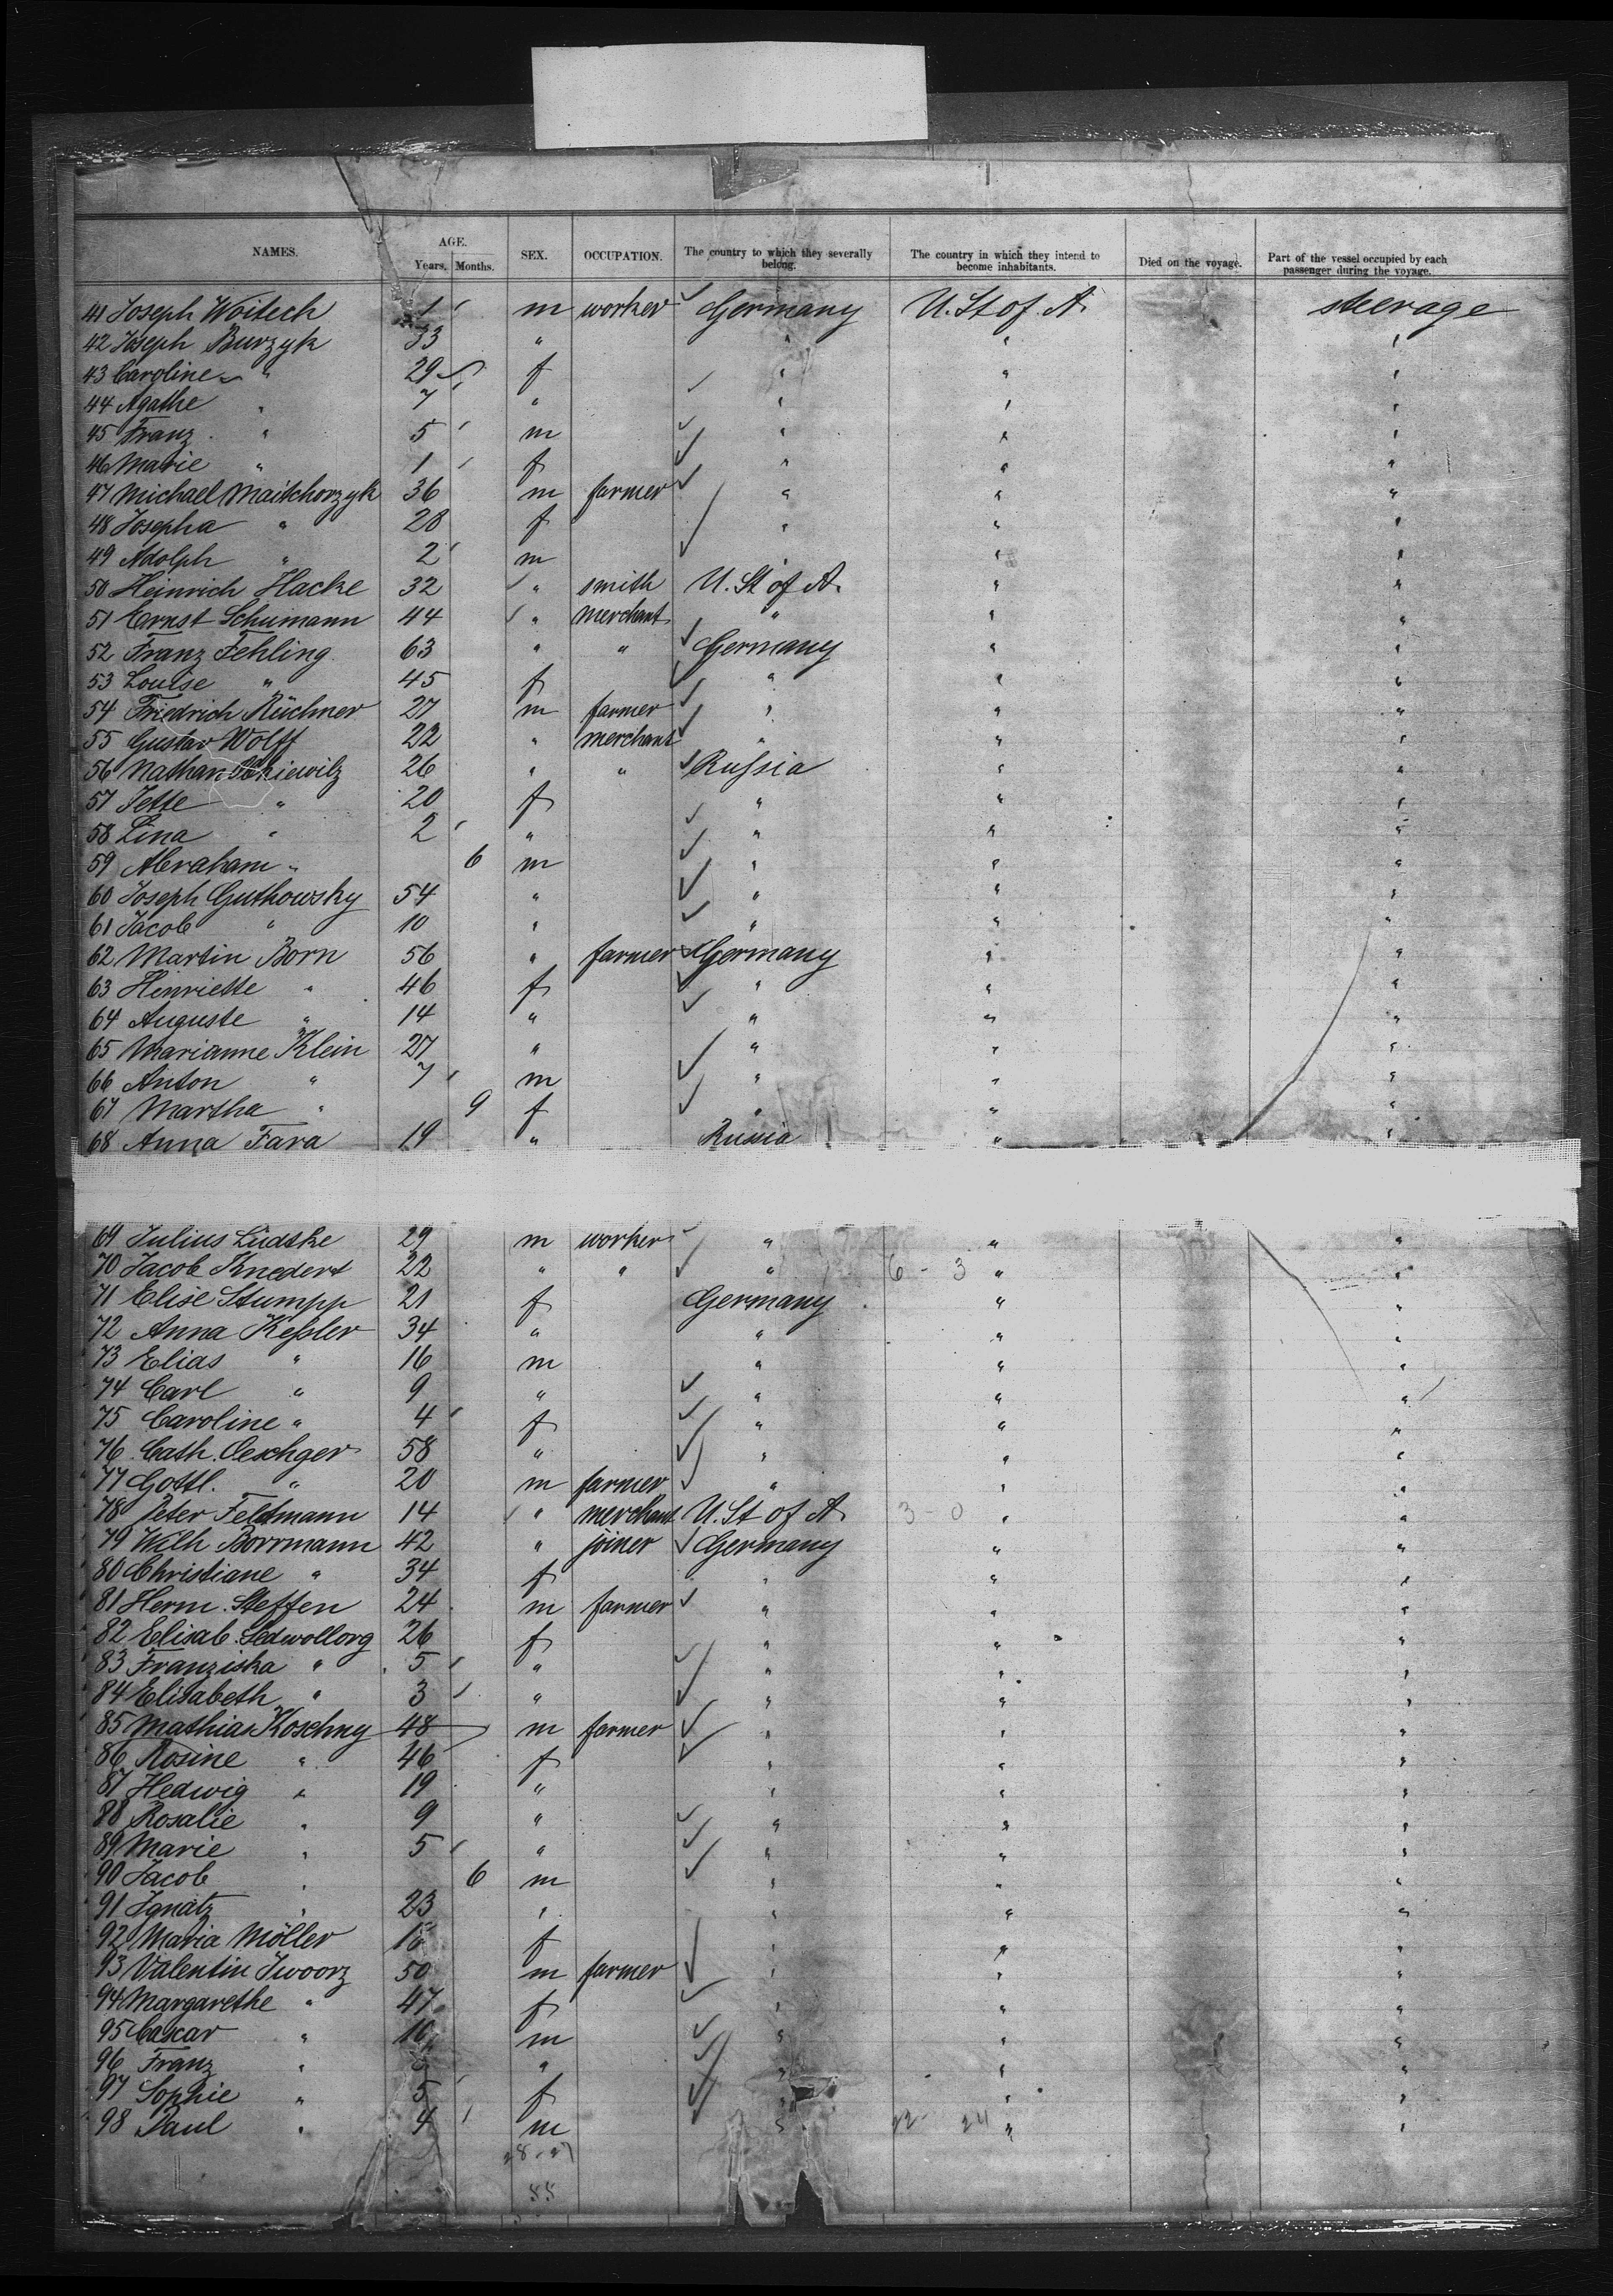 NAMES. AGE. Years. Months. SEX. OCCUPATION. The country to which they severally belong. The country in which they intend to become inhabitants. Died on the voyage. Part of the vessel occupied by each passenger during the voyage.
41 Joseph Woitech 1 m worker Germany U. St of. A. steerage
42 Joseph Burzyk 33 " " " "
43 Caroline " 29 f " " "
44 Agathe " 7 " " " "
45 Franz " 5 m " " "
46 Marie " 1 f " " "
47 Michael Maitchorzyk 36 m farmer " " "
48 Josepha " 28 f " " "
49 Adolph " 2 m " " "
50 Heinrich Hacke 32 " smith U. St of A. " "
51 Ernst Schumann 44 " merchant " " "
52 Franz Fehling 63 " " Germany " "
53 Louise " 45 f " " "
54 Friedrich Küchner 27 m farmer " " "
55 Gustav Wolff 22 " merchant " " "
56 Nathan 26 " " Russia " "
57 Jette " 20 f " " "
58 Lina " 2 " " " "
59 Abraham " 6 m " " "
60 Joseph Guthowsky 54 " " " "
61 Jacob " 10 " " " "
62 Martin Born 56 " farmer Germany " "
63 Henriette " 46 f " " "
64 Auguste " 14 " " " "
65 Marianne Klein 27 " " " "
66 Anton " 7 m " " "
67 Martha " 9 f " " "
68 Anna Fara 19 " Russia " "
69 Julius Lüdtke 29 m worker " " "
70 Jacob Knedert 22 " " " 6 - 3 " "
71 Elise Stumpp 21 f Germany " "
72 Anna Kessler 34 " " " "
73 Elias " 16 m " " "
74 Carl " 9 " " " "
75 Caroline " 4 f " " "
76 Cath. Oeschger 58 " " " "
77 Gottl. " 20 m farmer " " "
78 Peter Feldmann 14 " merchant U. St of A. 3 - 0 " "
79 Wilh Borrmann 42 " joiner Germany " "
80 Christiane " 34 f " " "
81 Herm. Steffen 24 m farmer " " "
82 Elisab. Sedwollorg 26 f " " "
83 Franziska " 5 " " " "
84 Elisabeth " 3 " " " "
85 Mathias Koschny 48 m farmer " " "
86 Rosine " 46 f " " "
87 Hedwig " 19 " " " "
88 Rosalie " 9 " " " "
89 Marie " 5 " " " "
90 Jacob " 6 m " " "
91 Ignatz " 23 " " " "
92 Maria Möller f " " "
93 Valentin Iwoorz 50 m farmer " " "
94 Margarethe " 47 f " " "
95 Cascar " m " " "
96 Franz " " " " "
97 Sophie " 5 f " " "
98 Paul " 4 m " 22 - 24 " "